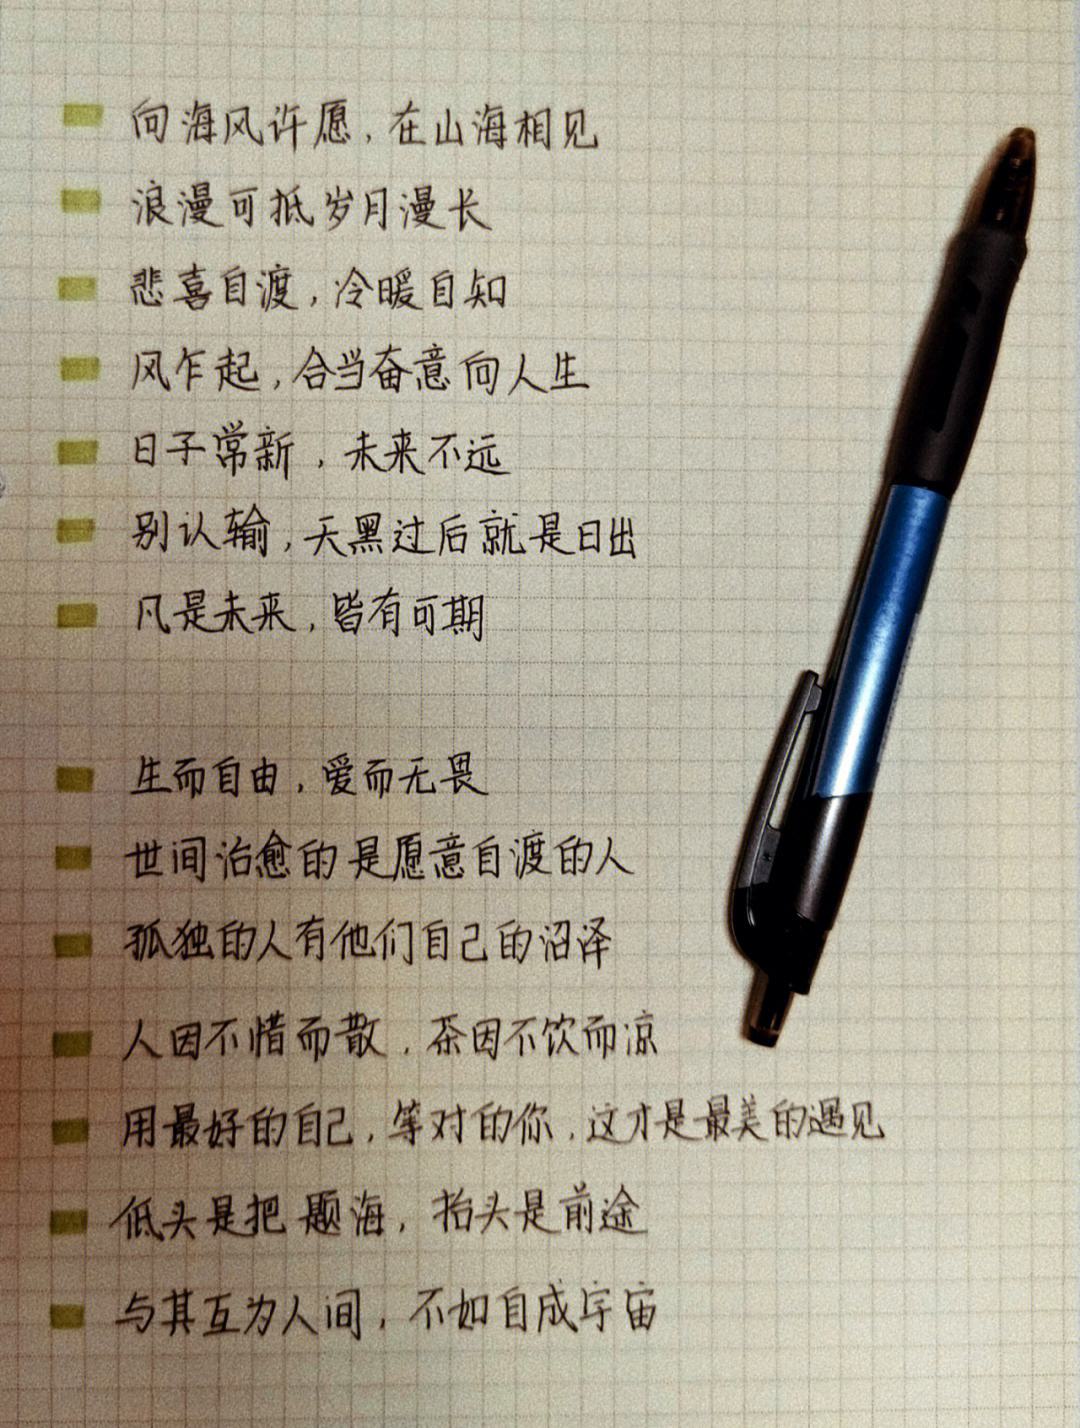 向海风许愿，在山海相见
浪漫可抵岁月漫长
悲喜自渡，冷暖自知
风乍起，合当奋意向人生
日子常新，未来不远
别认输，天黑过后就是日出
凡是未来，皆有可期
生而自由，爱而无畏
世间治愈的是愿意自渡的人
孤独的人有他们自己的沼泽
人因不惜而散，茶因不饮而凉
用最好的自己，等对的你，这才是最美的遇见
低头是把题海，抬头是前途
与其互为人间，不如自成宇宙